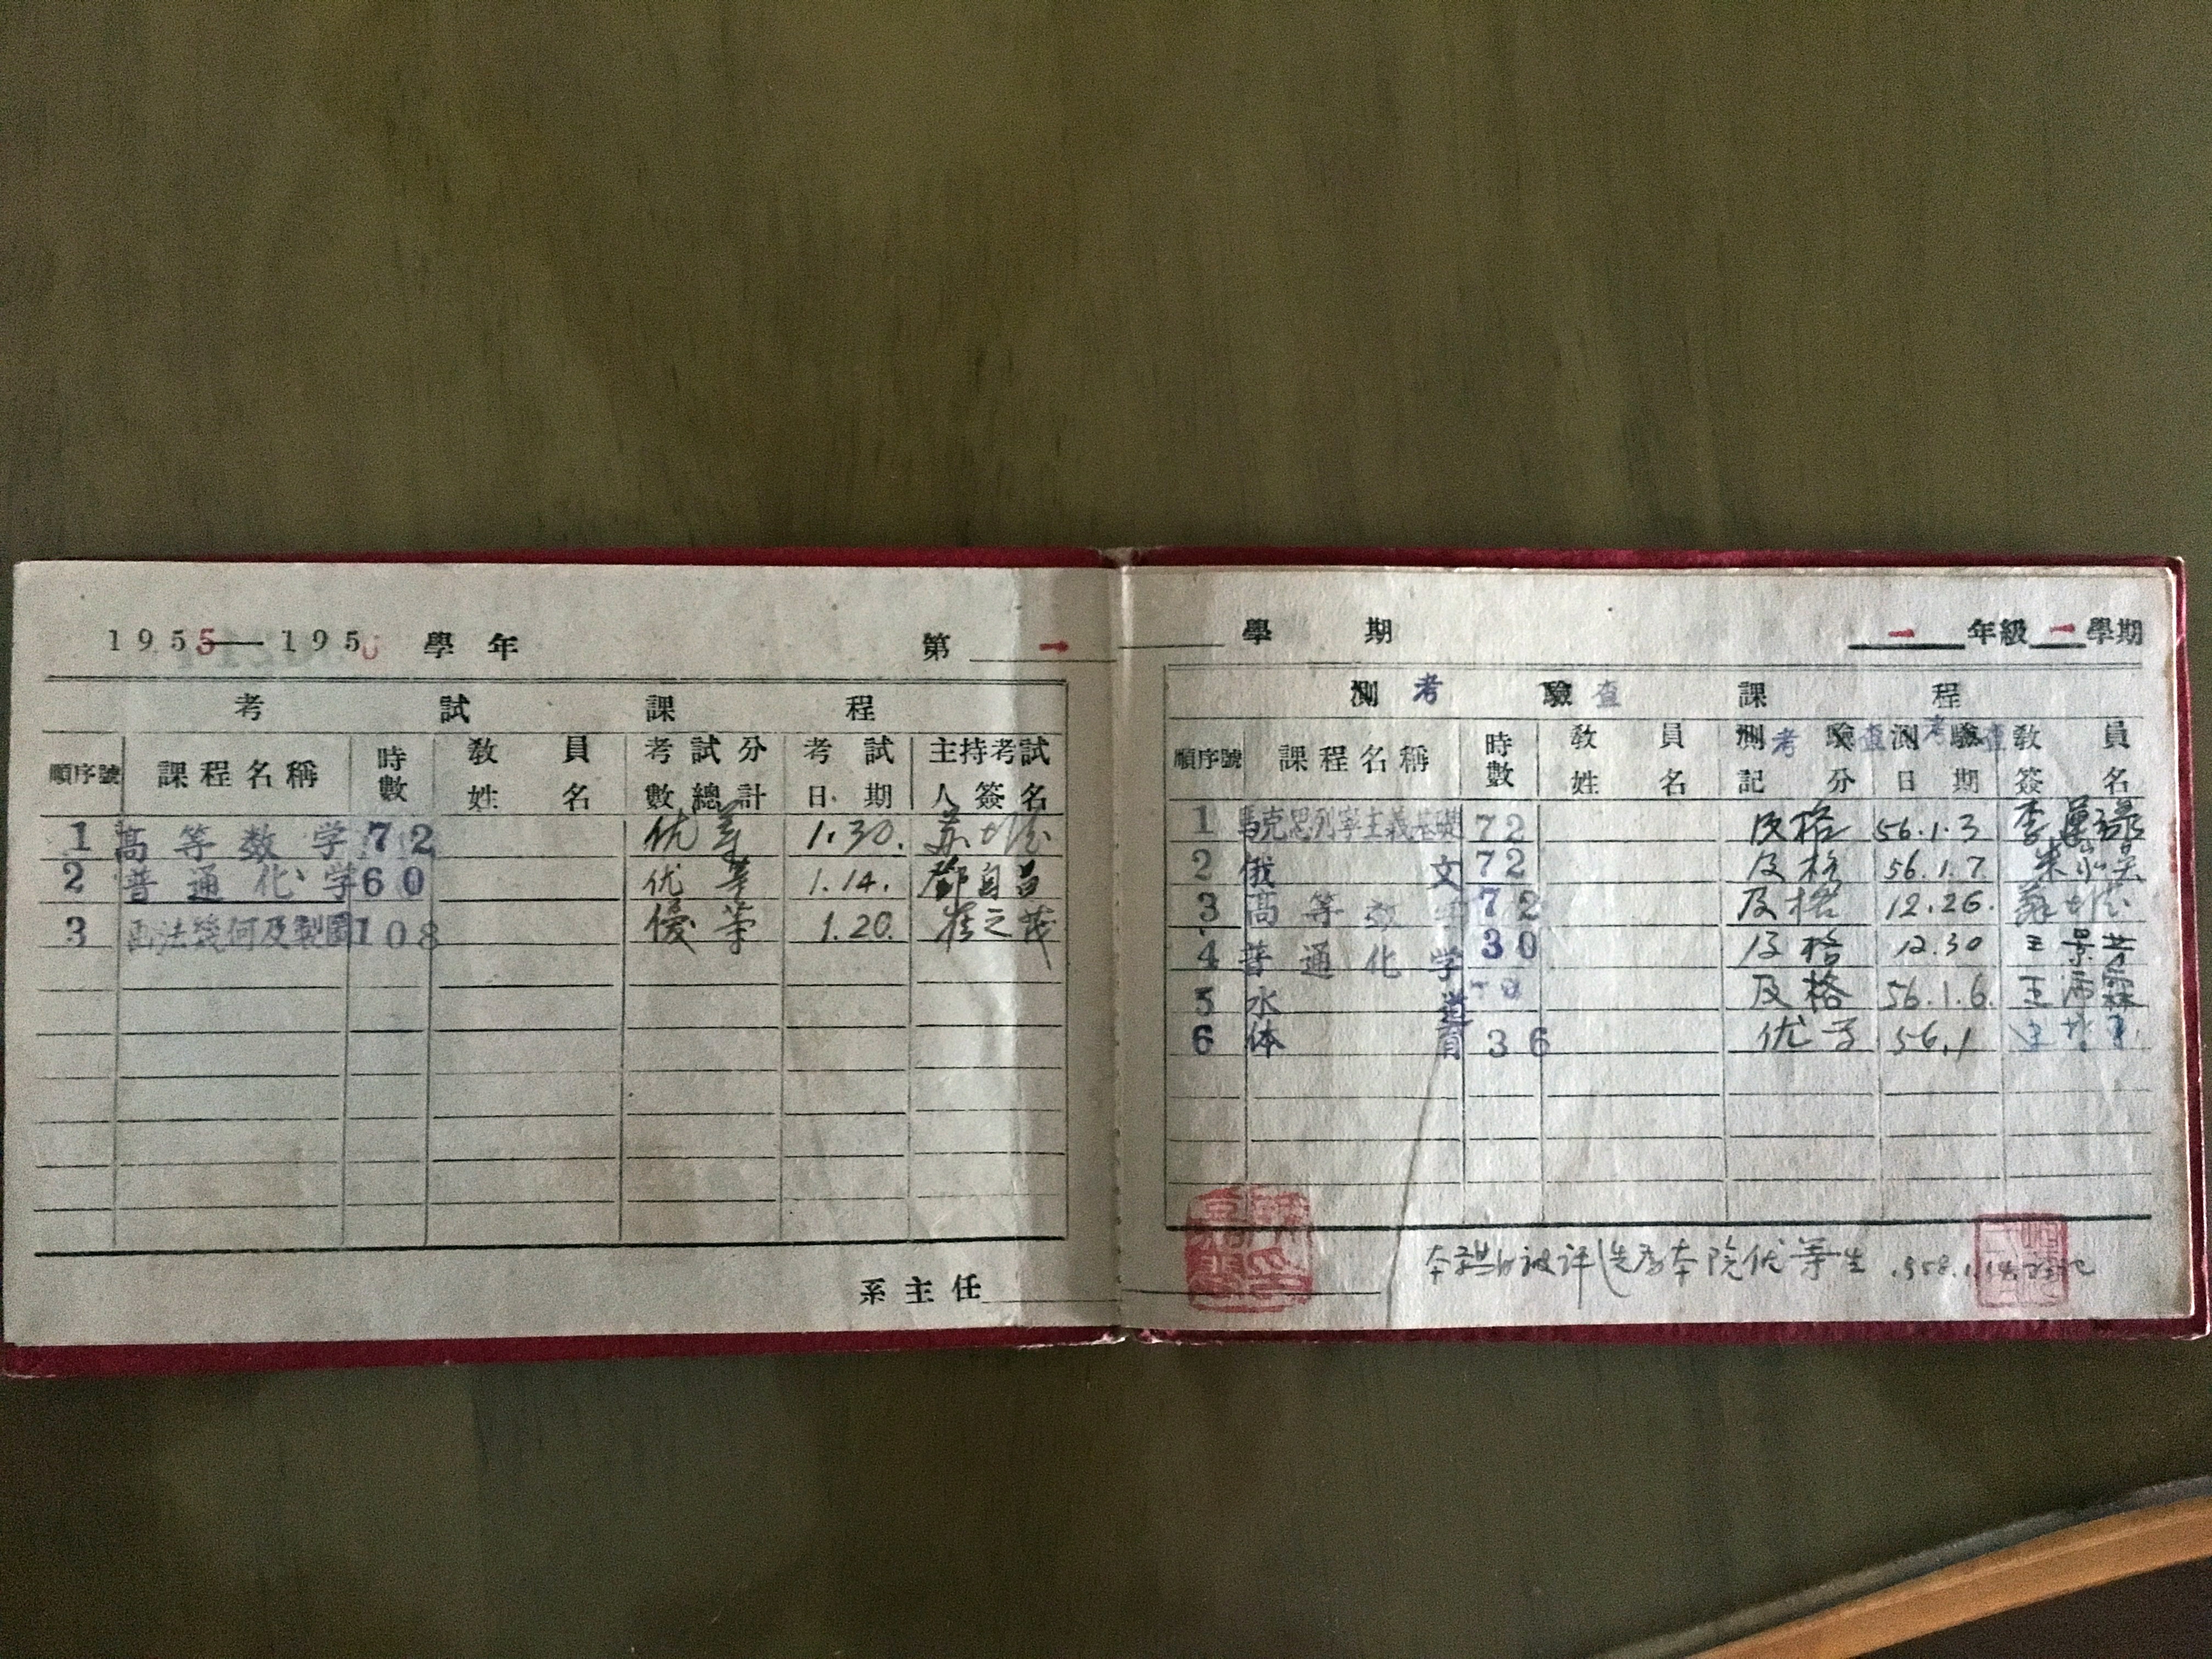 1955—1956 學年 第 一 學 期 一 年級 一 學期
考 試 課 程
順序號 課程名稱 時數 教員姓名 考試分數總計 考試日期 主持考試人簽名
1 高等数学 72 优等 1.30.
2 普通化学 60 优等 1.14. 鄧自昌
3 画法幾何及製圖 108 優等 1.20. 崔之茂
系主任
測考 驗查 課 程
順序號 課程名稱 時數 教員姓名 測考驗查記分 測考驗查日期 教員簽名
1 馬克思列寧主義基礎 72 及格 56.1.3
2 俄文 72 及格 56.1.7
3 高等数学 72 及格 12.26.
4 普通化学 30 及格 12.30 王景芳
5 水道 及格 56.1.6.
6 体育 36 优等 56.1
本学期被评选为本院优等生 1958.1.14.